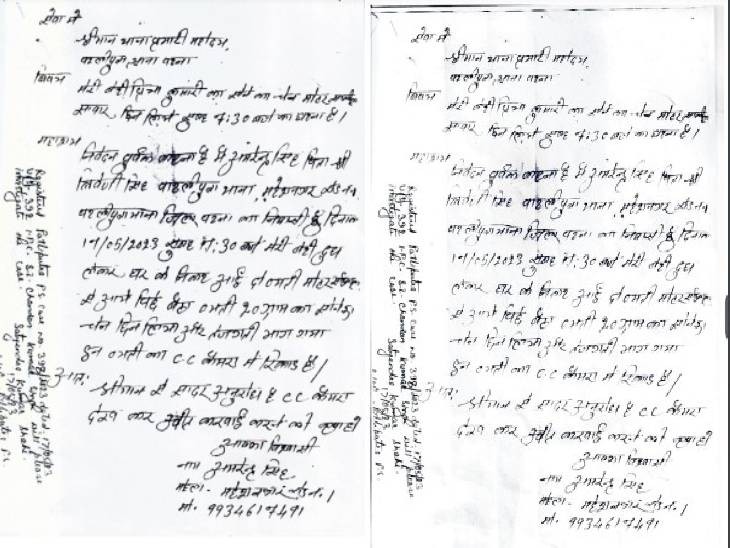 सेवा में
श्रीमान थाना प्रभारी महोदय,
पाटलीपुत्रा थाना पटना
विषय मेरी बेटी प्रिया कुमारी का सोने का चेन मोटर साईकिल
सवार छिन लिये सुबह 7:30 बजे का घटना है।
महाशय
निवेदन पूर्वक कहना है मैं अमरेन्द्र सिंह पिता श्री
सिंह पाटलीपुत्रा थाना, महेशनगर रोड नं 1
पाटलीपुत्रा थाना जिला पटना का निवासी हूँ दिनांक
17/05/2023 सुबह 7:30 बजे मेरी बेटी दुध
लेकर घर के निकट आई दो आदमी मोटर साईकिल
से आगे पिछे बैठा आदमी 20 ग्राम का सोने का
चेन छिन लिया और भाग गया
इन आदमी का C.C कैमरा में रिकार्ड है।
अतः
श्रीमान से सादर अनुरोध है CC कैमरा
देख कर उचित कारवाई करने की कृपा की
आपका विश्वासी
नाम अमरेन्द्र सिंह
महेशनगर रोड नं. 1
मो. 9934617491
Registered Patliputra P.S. case no. 398/2023 dated. 17/05/23
U/S. 392 I.P.C. S.I. Chandan Kumar Singh will please
investigate the case.
Satyendra Kumar Shahi
17/05/23
Patliputra P.S.
सेवा में
श्रीमान थाना प्रभारी महोदय,
पाटलीपुत्रा थाना पटना
विषय
मेरी बेटी प्रिया कुमारी का सोने का चेन मोटर साईकिल
सवार छिन लिये सुबह 7:30 बजे का घटना है।
महाशय
निवेदन पूर्वक कहना है मैं अमरेन्द्र सिंह पिता श्री
सिंह पाटलीपुत्रा थाना, महेशनगर रोड नं 1
पाटलीपुत्रा थाना जिला पटना का निवासी हूँ दिनांक
17/05/2023 सुबह 7:30 बजे मेरी बेटी दुध
लेकर घर के निकट आई दो आदमी मोटर साईकिल
से आगे पिछे बैठा आदमी 20 ग्राम का सोने का
चेन छिन लिया और भाग गया
इन आदमी का C.C कैमरा में रिकार्ड है।
अतः
श्रीमान से सादर अनुरोध है CC कैमरा
देख कर उचित कारवाई करने की कृपा की
आपका विश्वासी
नाम अमरेन्द्र सिंह
महेशनगर रोड नं. 1
मो. 9934617491
Registered Patliputra P.S. case no. 398/2023 dated. 17/05/23
U/S. 392 I.P.C. S.I. Chandan Kumar Singh will please
investigate the case.
Satyendra Kumar Shahi
17/05/23
Patliputra P.S.